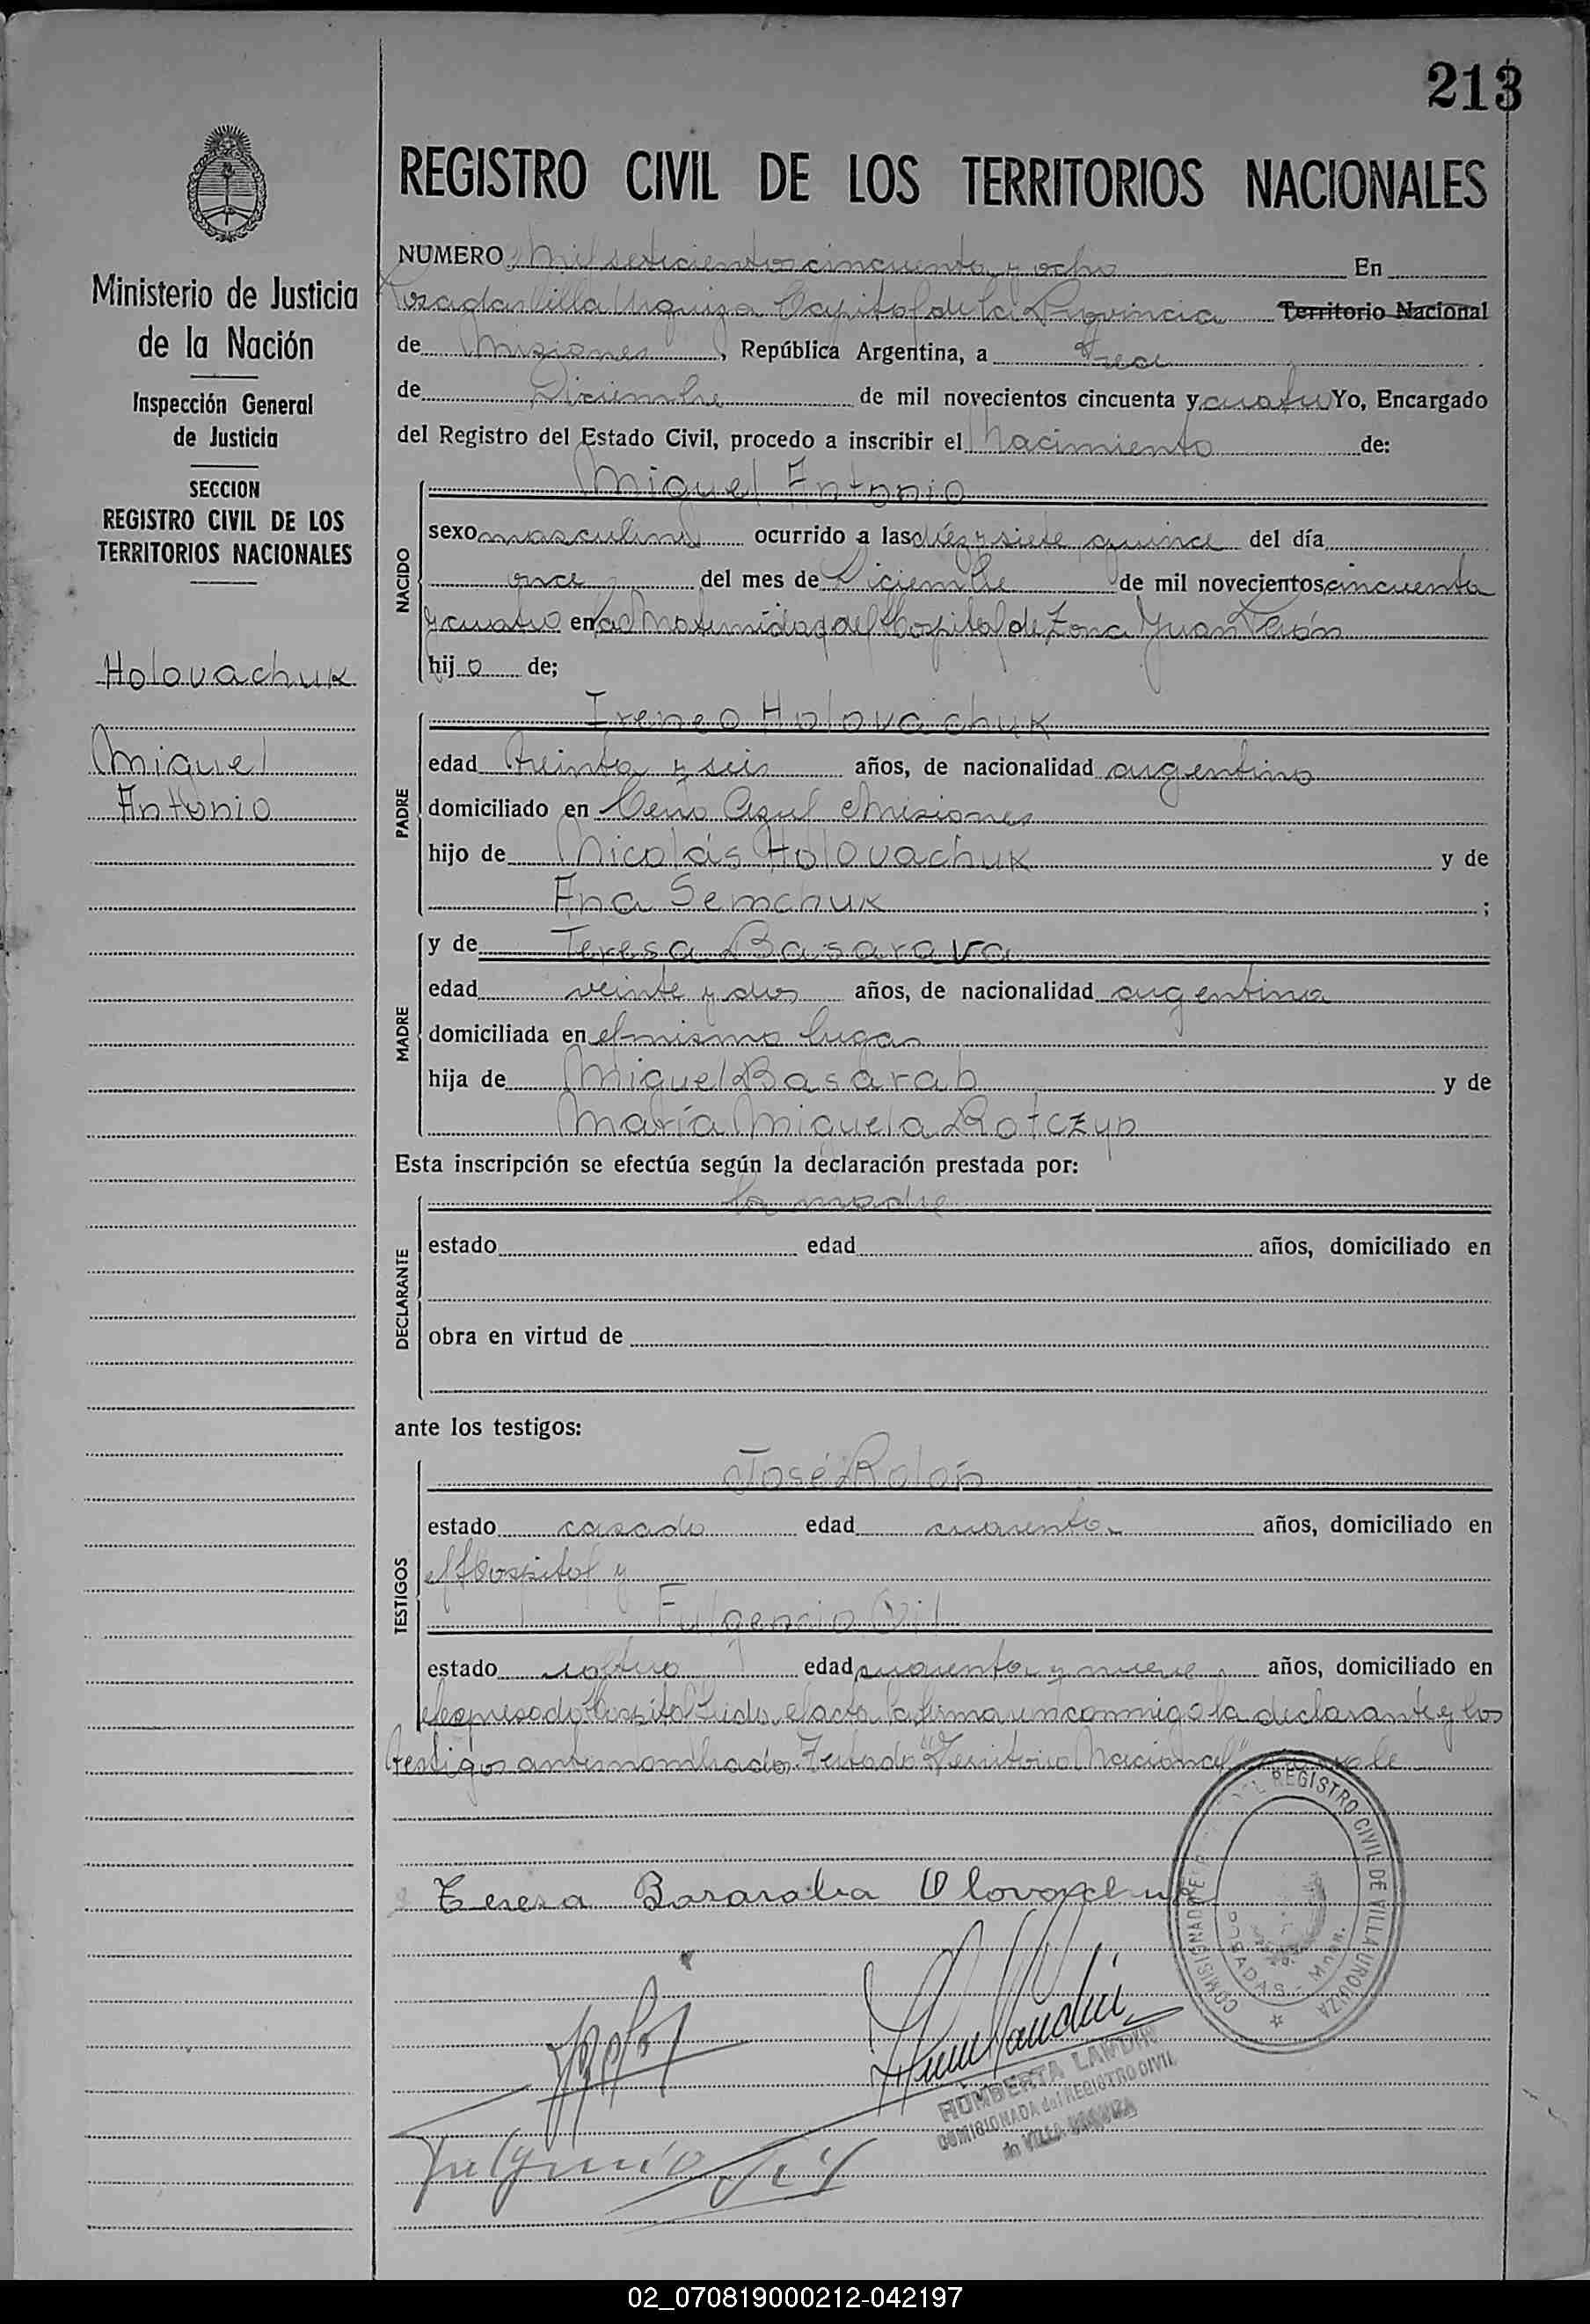 213
REGISTRO CIVIL DE LOS TERRITORIOS NACIONALES
Ministerio de Justicia
de la Nación
Inspección General
de Justicia
SECCION
REGISTRO CIVIL DE LOS
TERRITORIOS NACIONALES
Holovachuk
Miguel
Antonio
NUMERO Mil setecientos cincuenta y ocho En
Posadas Villa Urquiza Capital de la Provincia Territorio Nacional
de Misiones, República Argentina, a trece
de Diciembre de mil novecientos cincuenta y cuatro Yo, Encargado
del Registro del Estado Civil, procedo a inscribir el Nacimiento de:
NACIDO
Miguel Antonio
sexo masculino ocurrido a las diez y siete quince del día
once del mes de Diciembre de mil novecientos cincuenta
y cuatro en la Maternidad del Hospital de Zona Juan Perón
hijo de;
PADRE
Ireneo Holovachuk
edad treinta y seis años, de nacionalidad argentino
domiciliado en Cerro Azul Misiones
hijo de Nicolás Holovachuk y de
Ana Semchuk ;
MADRE
y de Teresa Basarava
edad veinte y dos años, de nacionalidad argentina
domiciliada en el mismo lugar
hija de Miguel Basarab y de
María Miguela Rotczyp
Esta inscripción se efectúa según la declaración prestada por:
DECLARANTE
la madre
estado edad años, domiciliado en
obra en virtud de
ante los testigos:
TESTIGOS
José Rolón
estado casado edad cuarenta años, domiciliado en
el Hospital y
Fulgencio Gil
estado soltero edad cuarenta y nueve años, domiciliado en
el expresado Hospital Leida el acta la firmaron conmigo la declarante y los
testigos antes nombrados. Testado "Territorio Nacional" no vale
Teresa Basaraba Olovachuk
Fulgencio Gil
COMISIONADO DEL REGISTRO CIVIL DE VILLA URQUIZA
POSADAS - Mnes.
ROMBERTA LANDINI
COMISIONADA del REGISTRO CIVIL
de VILLA URQUIZA
02_070819000212-042197